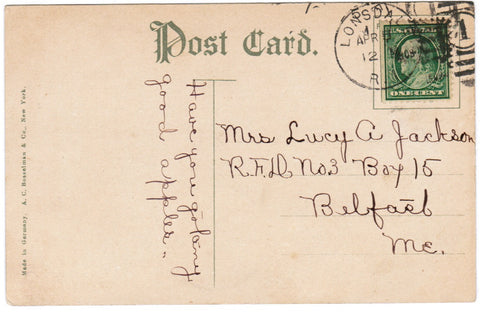 Post Card.
LONSD
APR
12
R
1
ONE CENT
Have you gotany
good apples..
Mrs Lucy A Jackson
R.F.D. No3 Boy 15
Belfast
Me.
Made in Germany. A. C. Bosselman & Co., New York.